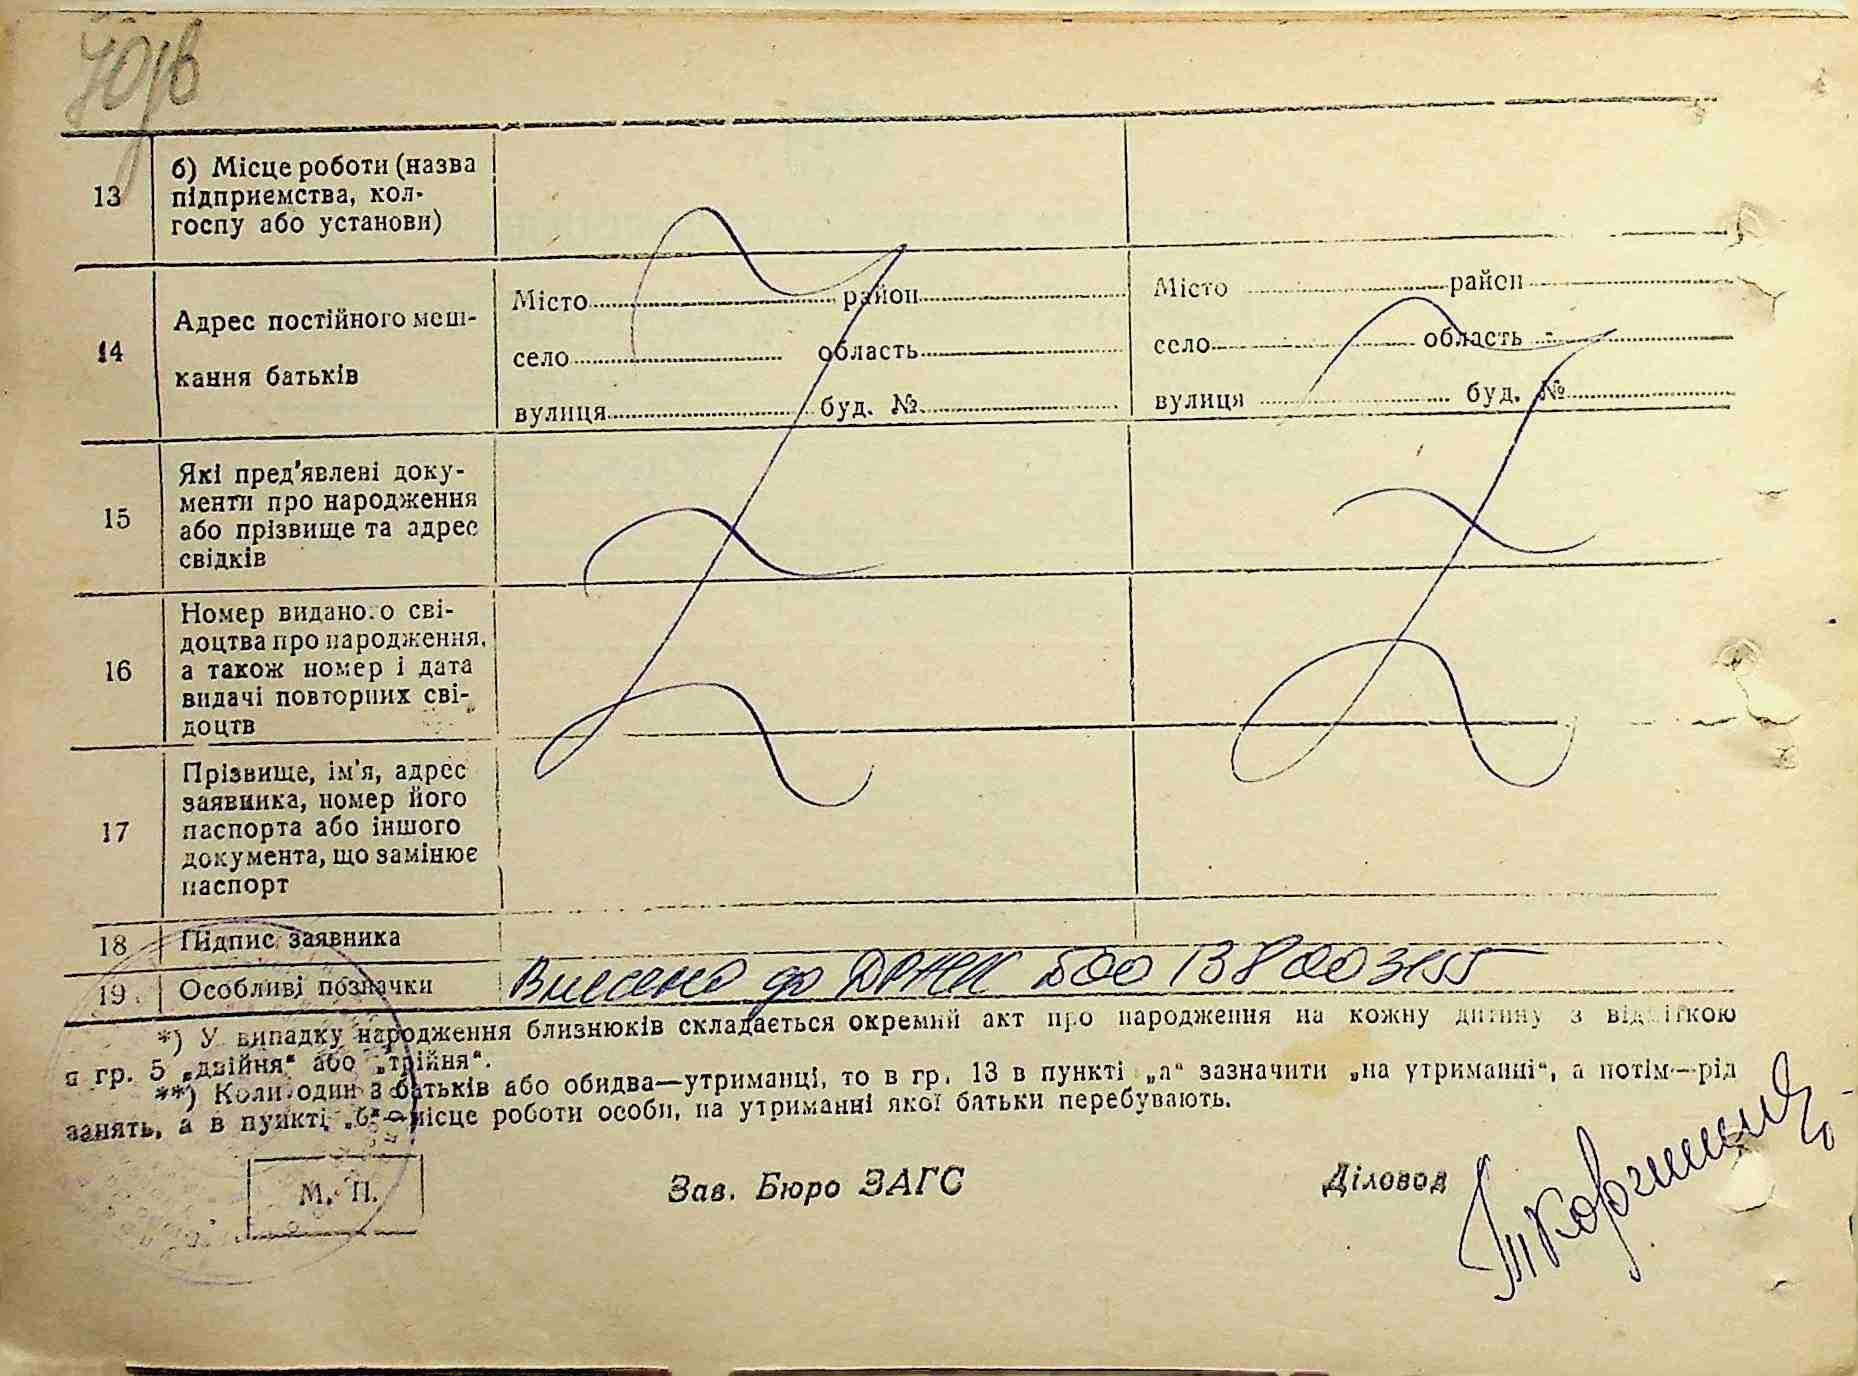 13
б) Місце роботи (назва
підприємства, кол-
госпу або установи)
14
Адрес постійного меш-
кання батьків
Місто район
село область
вулиця буд. №
Місто район
село область
вулиця буд. №
15
Які пред'явлені доку-
менти про народження
або прізвище та адрес
свідків
16
Номер виданого сві-
доцтва про народження,
а також номер і дата
видачі повторних сві-
доцтв
17
Прізвище, ім'я, адрес
заявника, номер його
паспорта або іншого
документа, що замінює
паспорт
18 Підпис заявника
19 Особливі позначки Внесено до 00138003155
*) У випадку народження близнюків складається окремий акт про народження на кожну дитину з відміткою
в гр. 5 „двійня“ або „трійня“.
**) Коли один з батьків або обидва—утриманці, то в гр. 13 в пункті „а“ зазначити „на утриманні“, а потім—рід
занять, а в пункті „б“—місце роботи особи, на утриманні якої батьки перебувають.
М. П. Зав. Бюро ЗАГС Діловод